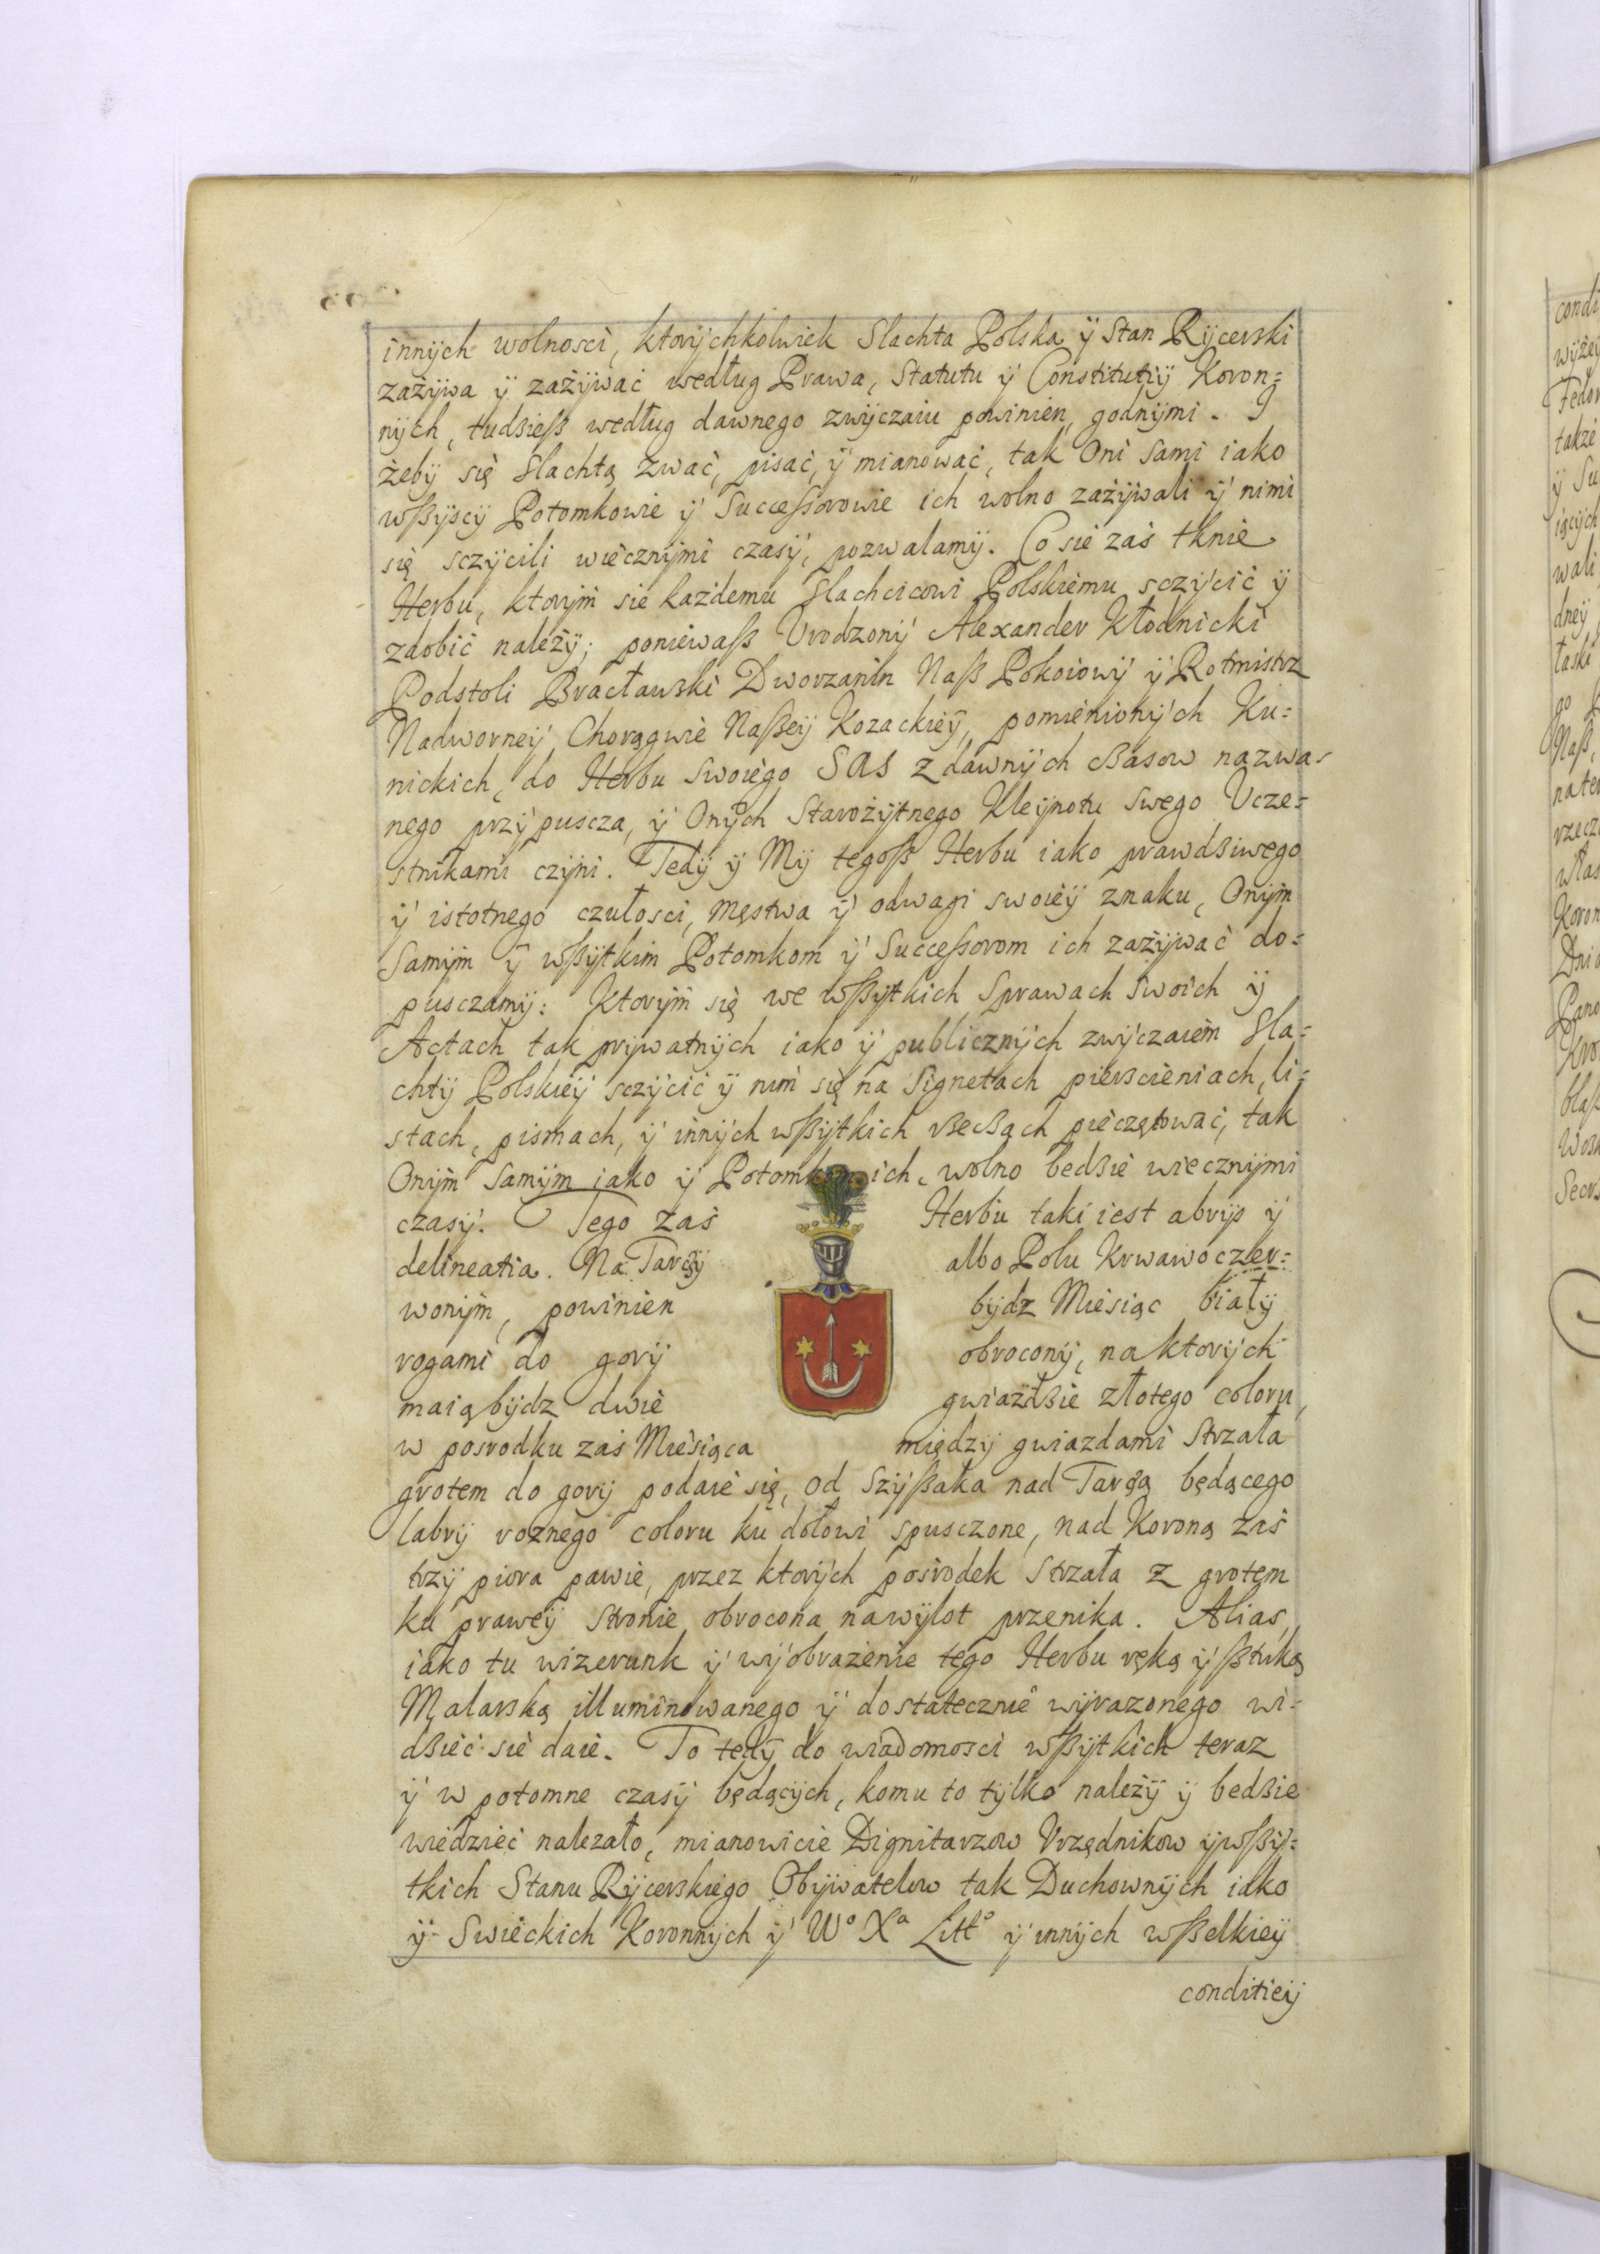 innÿch wolnosci, ktorÿchkolwiek Slachta Polska ÿ Stan Rÿcerski
zażÿwa ÿ zażÿwać według Prawa, Statutu ÿ Constitutiÿ Koron=
nÿch, tudzieß według dawnego zwÿczaiu powinien, godnÿmi. I
żebÿ się Slachtą zwać, pisać, ÿ mianować, tak Oni sami iako
wßÿscÿ Potomkowie ÿ Succeßorowie ich wolno zażÿwali ÿ nimi
się sczÿcili wiecznÿmi czasÿ, pozwalamÿ. Co sie zaś tknie
Herbu, ktorÿm sie każdemu Slachcicowi Polskiemu sczÿcić ÿ
zdobić należÿ; poniewaß Vrodzonÿ Alexander Kłodnicki
Podstoli Bracławski Dworzanin Naß Pokoiowÿ ÿ Rotmistrz
Nadworneÿ Chorągwie Naßeÿ Kozackieÿ, pomienionÿch Ku=
nickich, do Herbu swoiego SAS z dawnÿch cßasow nazwa=
nego przÿpuscza, ÿ Onÿch Starożÿtnego Kleÿnotu swego Vcze=
stnikami czÿni. Tedÿ ÿ Mÿ tegoß Herbu iako prawdßiwego
ÿ istotnego czułosci, męstwa ÿ odwagi swoieÿ znaku, Onÿm
samÿm ÿ wßÿtkim Potomkom ÿ Succeßorom ich zażÿwać do=
pusczamÿ: Ktorÿm się we wßÿtkich Sprawach swoich ÿ
Actach tak prÿwatnÿch iako ÿ publicznÿch zwÿczaiem Sla=
chtÿ Polskieÿ sczÿcić ÿ nim się na Signetach pierscieniach, li=
stach, pismach, ÿ innÿch wßÿtkich rßecßach pieczętować, tak
Onÿm samÿm iako ÿ Potomkom ich, wolno bedßie wiecznÿmi
czasÿ. Tego zaś Herbu taki iest abrÿs ÿ
delineatia. Na Tarcßÿ albo Polu Krwawoczer=
wonÿm, powinien bÿdz Miesiąc białÿ
rogami do gorÿ obroconÿ, na ktorÿch
maią bÿdz dwie gwiaźdßie złotego coloru,
w posrodku zaś Miesiąca międzÿ gwiazdami Strzała
grotem do gorÿ podaie się, od Szÿßaka nad Tarcßą będącego
labrÿ roznego coloru ku dołowi spusczone, nad Koroną zaś
trzÿ piora pawie, przez ktorÿch pośrodek Strzała z grotem
ku praweÿ stronie obrocona nawÿlot przenika. Alias,
iako tu wizerunk ÿ wÿobrażenie tego Herbu ręką ÿ ßtuką
Malarską illuminowanego ÿ dostatecznie wÿrazonego wi=
dßieć sie daie. To tedÿ do wiadomosci wßÿtkich teraz
ÿ w potomne czasÿ będącÿch, komu to tÿlko należÿ ÿ bedßie
wiedzieć należało, mianowicie Dignitarzow Vrzędnikow ÿ wßÿ=
tkich Stanu Rÿcerskiego Obÿwatelow tak Duchownÿch iako
ÿ Swieckich Koronnÿch ÿ Wº Xª Littº ÿ innÿch wßelkieÿ
conditieÿ